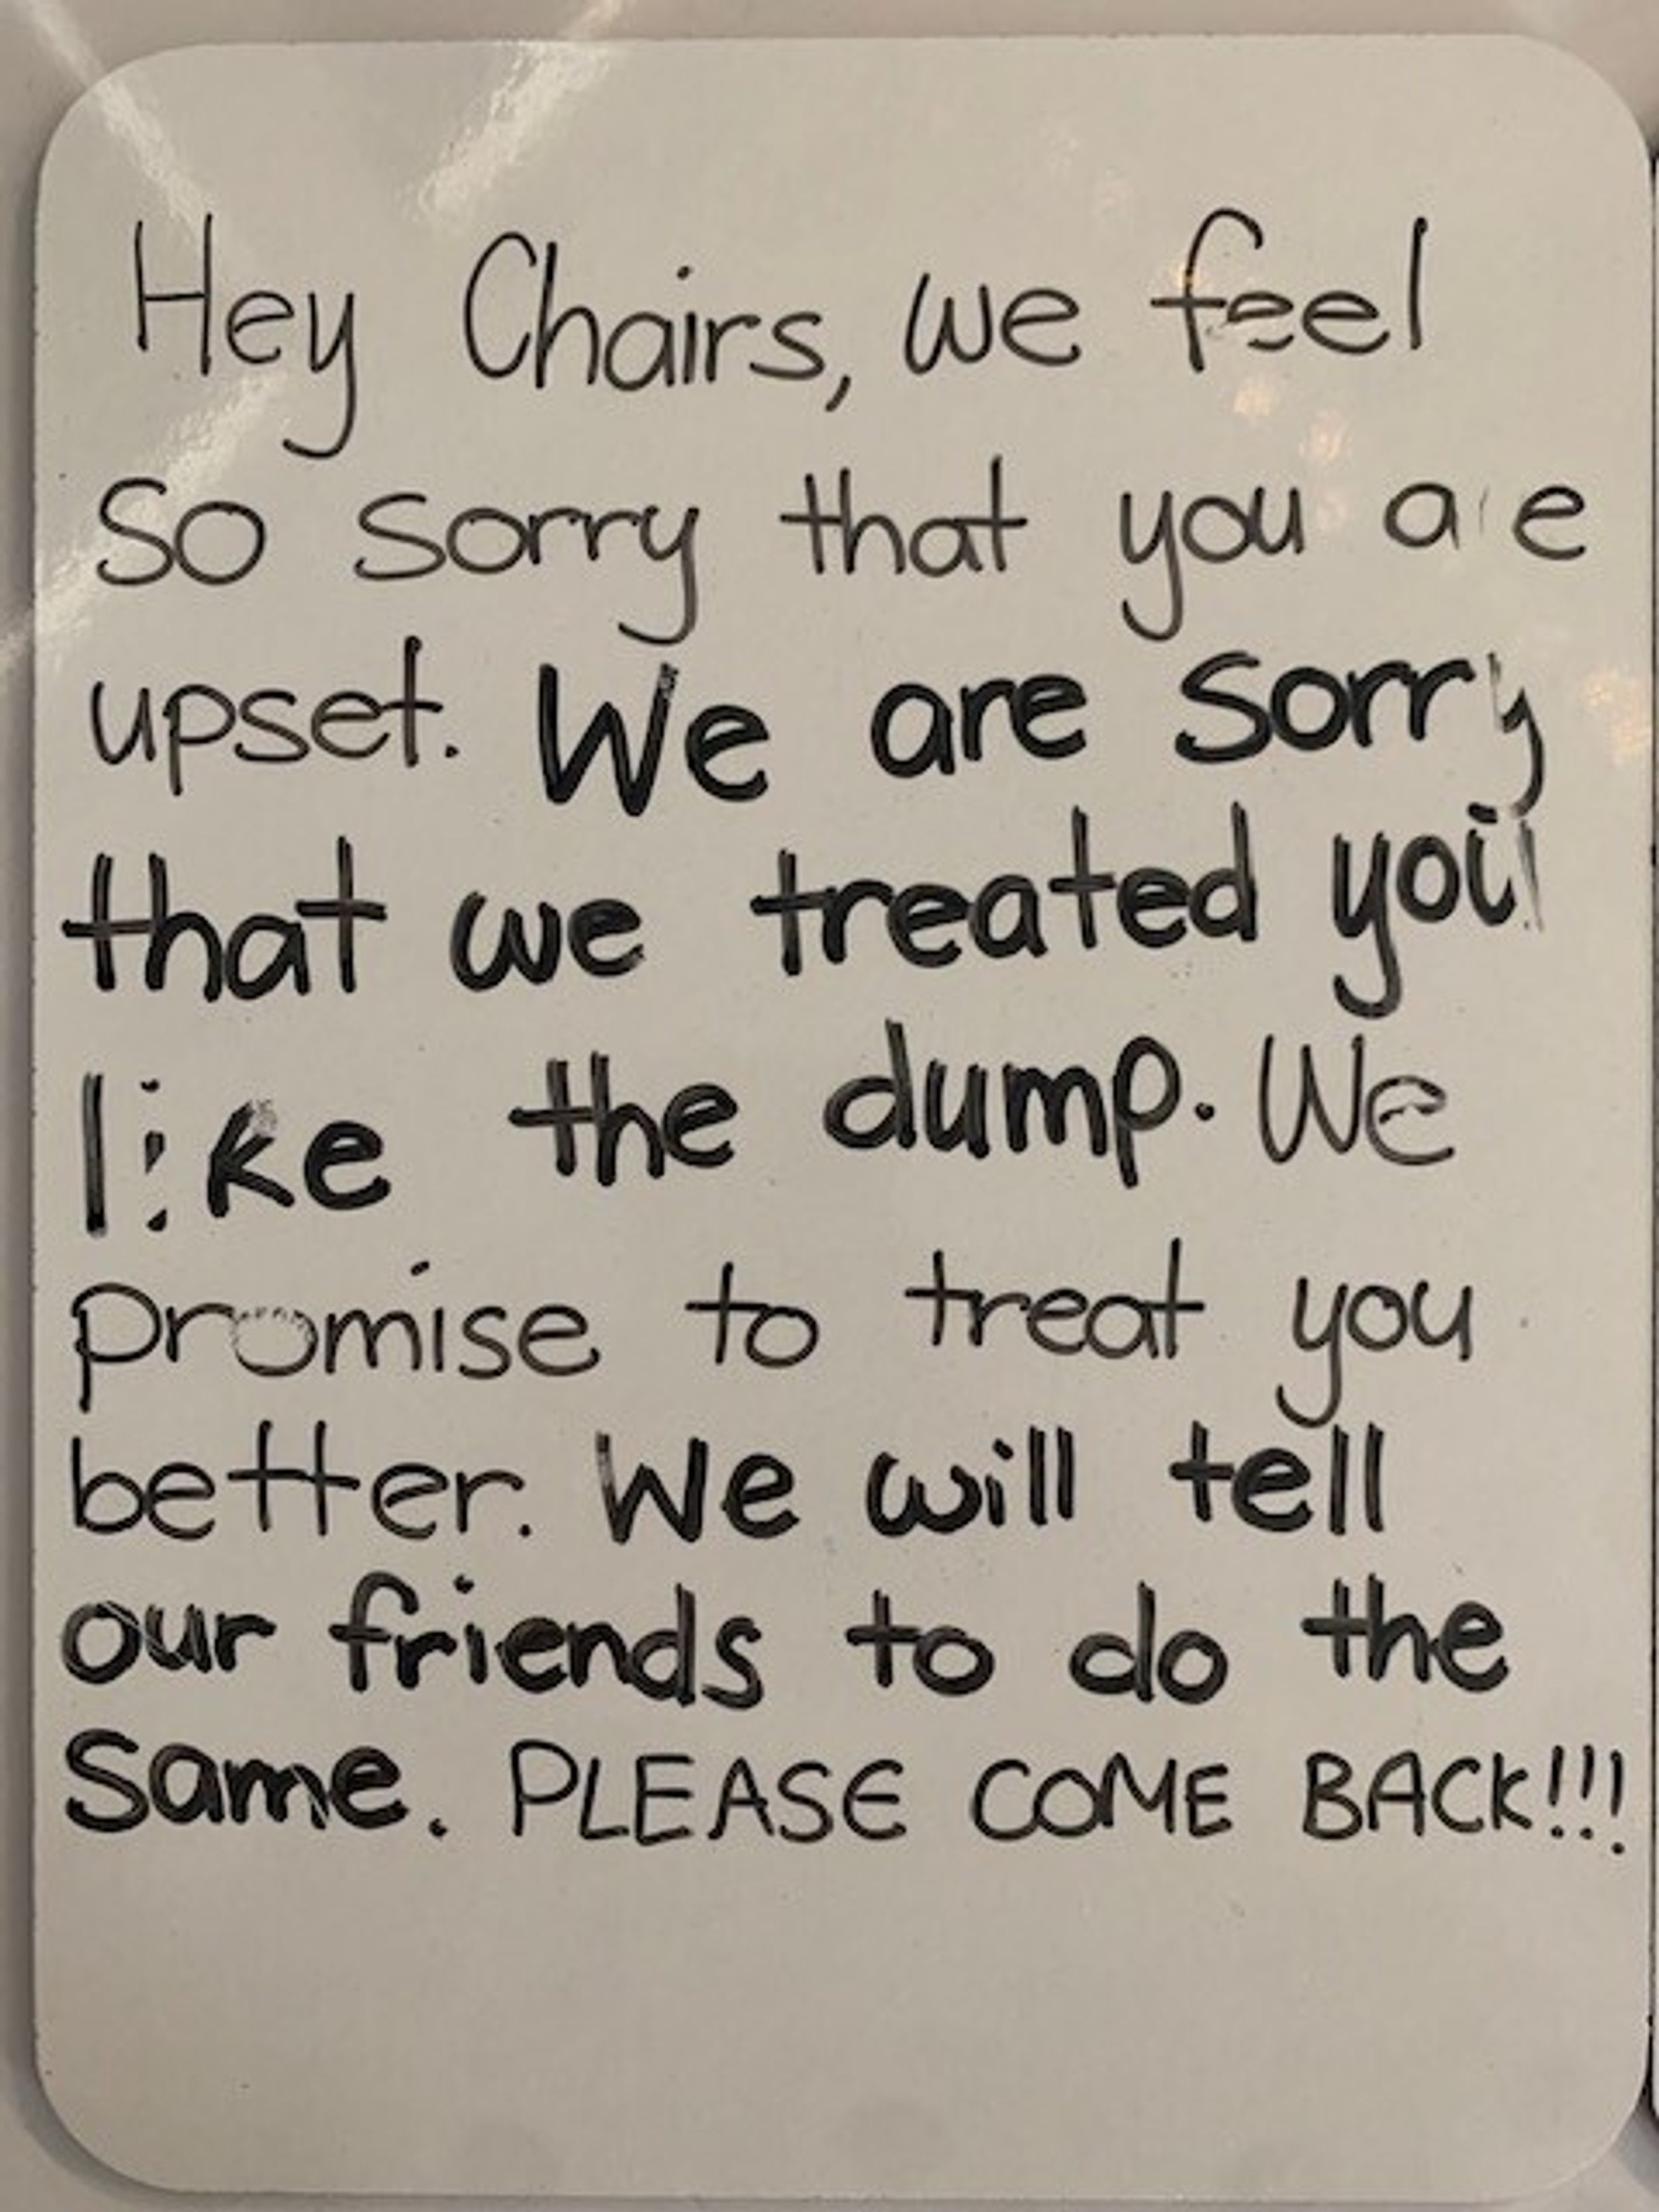 Hey Chairs, we feel
so sorry that you are
upset. We are sorry
that we treated you
like the dump. We
promise to treat you
better. We will tell
our friends to do the
same. PLEASE COME BACK!!!